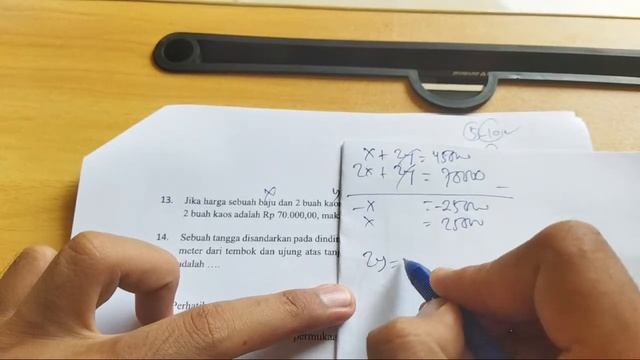 x + 2y = 45000
2x + 2y = 70000
-x = -25000
x = 25000
2y =
x
y
13. Jika harga sebuah baju dan 2 buah kao
2 buah kaos adalah Rp 70.000,00, mak
14. Sebuah tangga disandarkan pada dindin
meter dari tembok dan ujung atas tan
adalah ....
Perhati
permuka